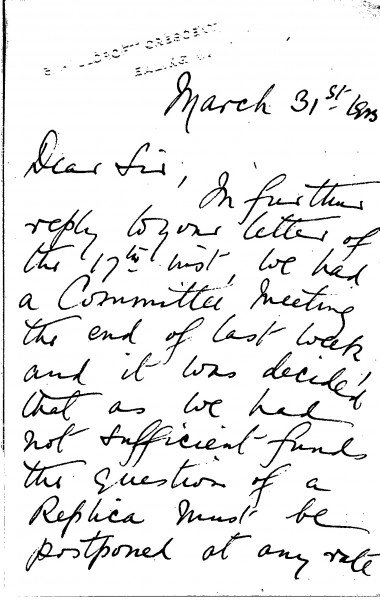 CRESCENT
EALING
March 31st
Dear Sir,
In further
reply to your letter of
the 17th inst, we had
a Committee Meeting
the end of last week
and it was decided
that as we had
not sufficient funds
the question of a
Replica must be
postponed at any rate